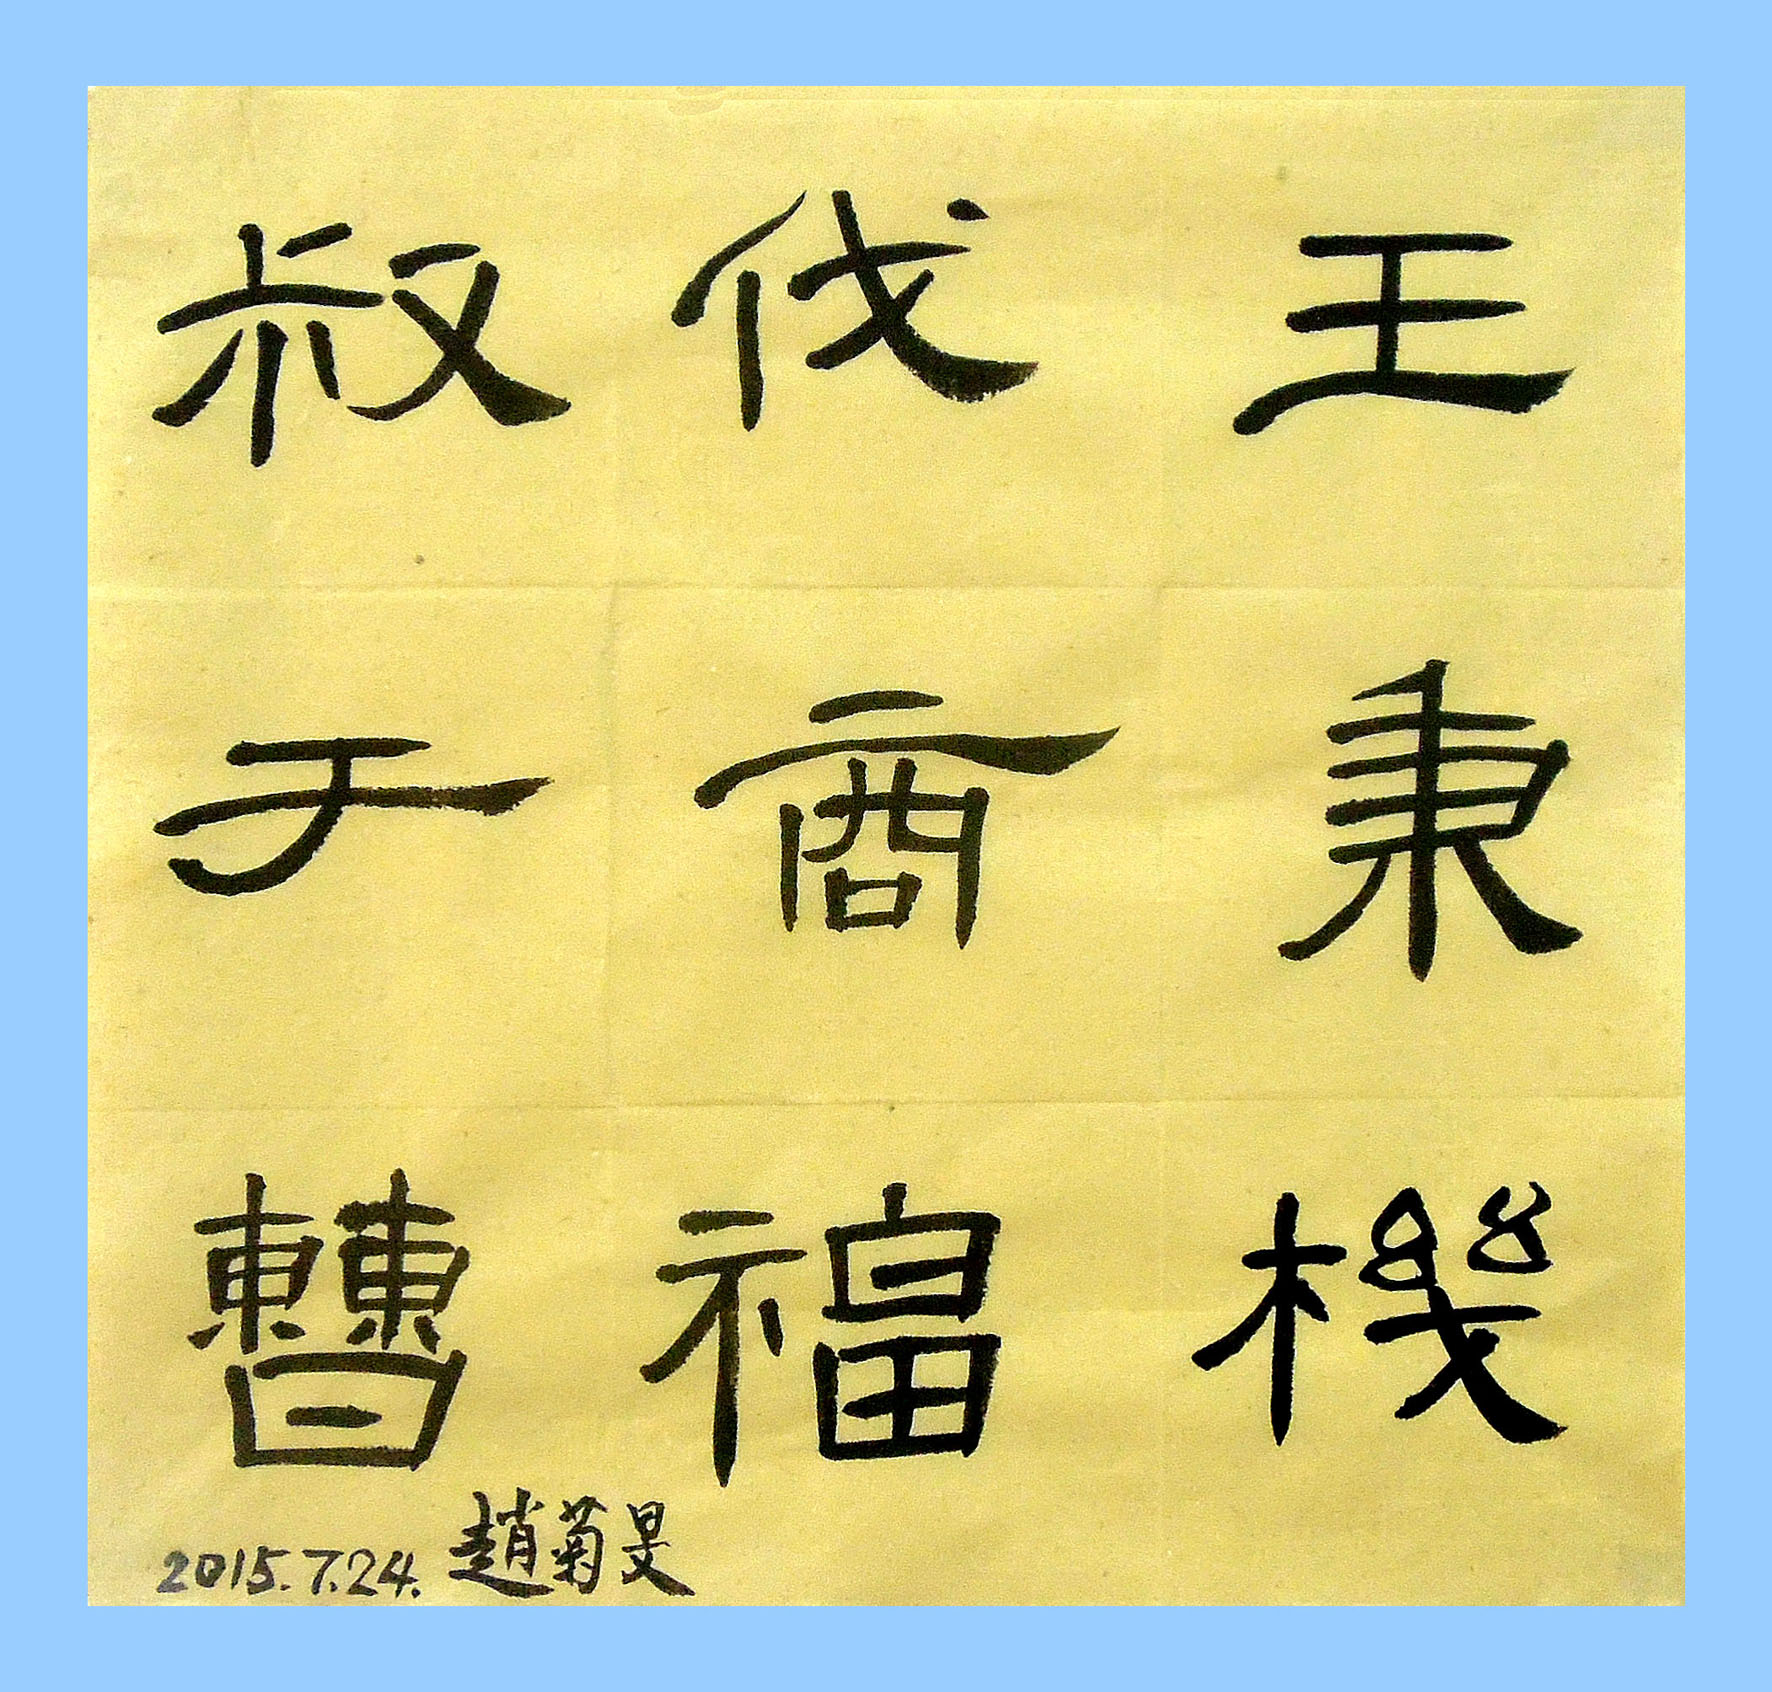 王秉機
伐商福
叔于曹
2015.7.24. 趙菊旻